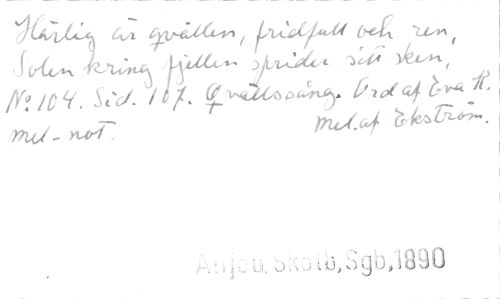 Härlig är qvällen, fridfull och ren,
Solen kring fjellen sprider sitt sken,
No 104. Sid. 107. Qvällssång. Ord af Eva R.
mel-not. Mel. af Ekström.
Anjou, Skolb, Sgb, 1890